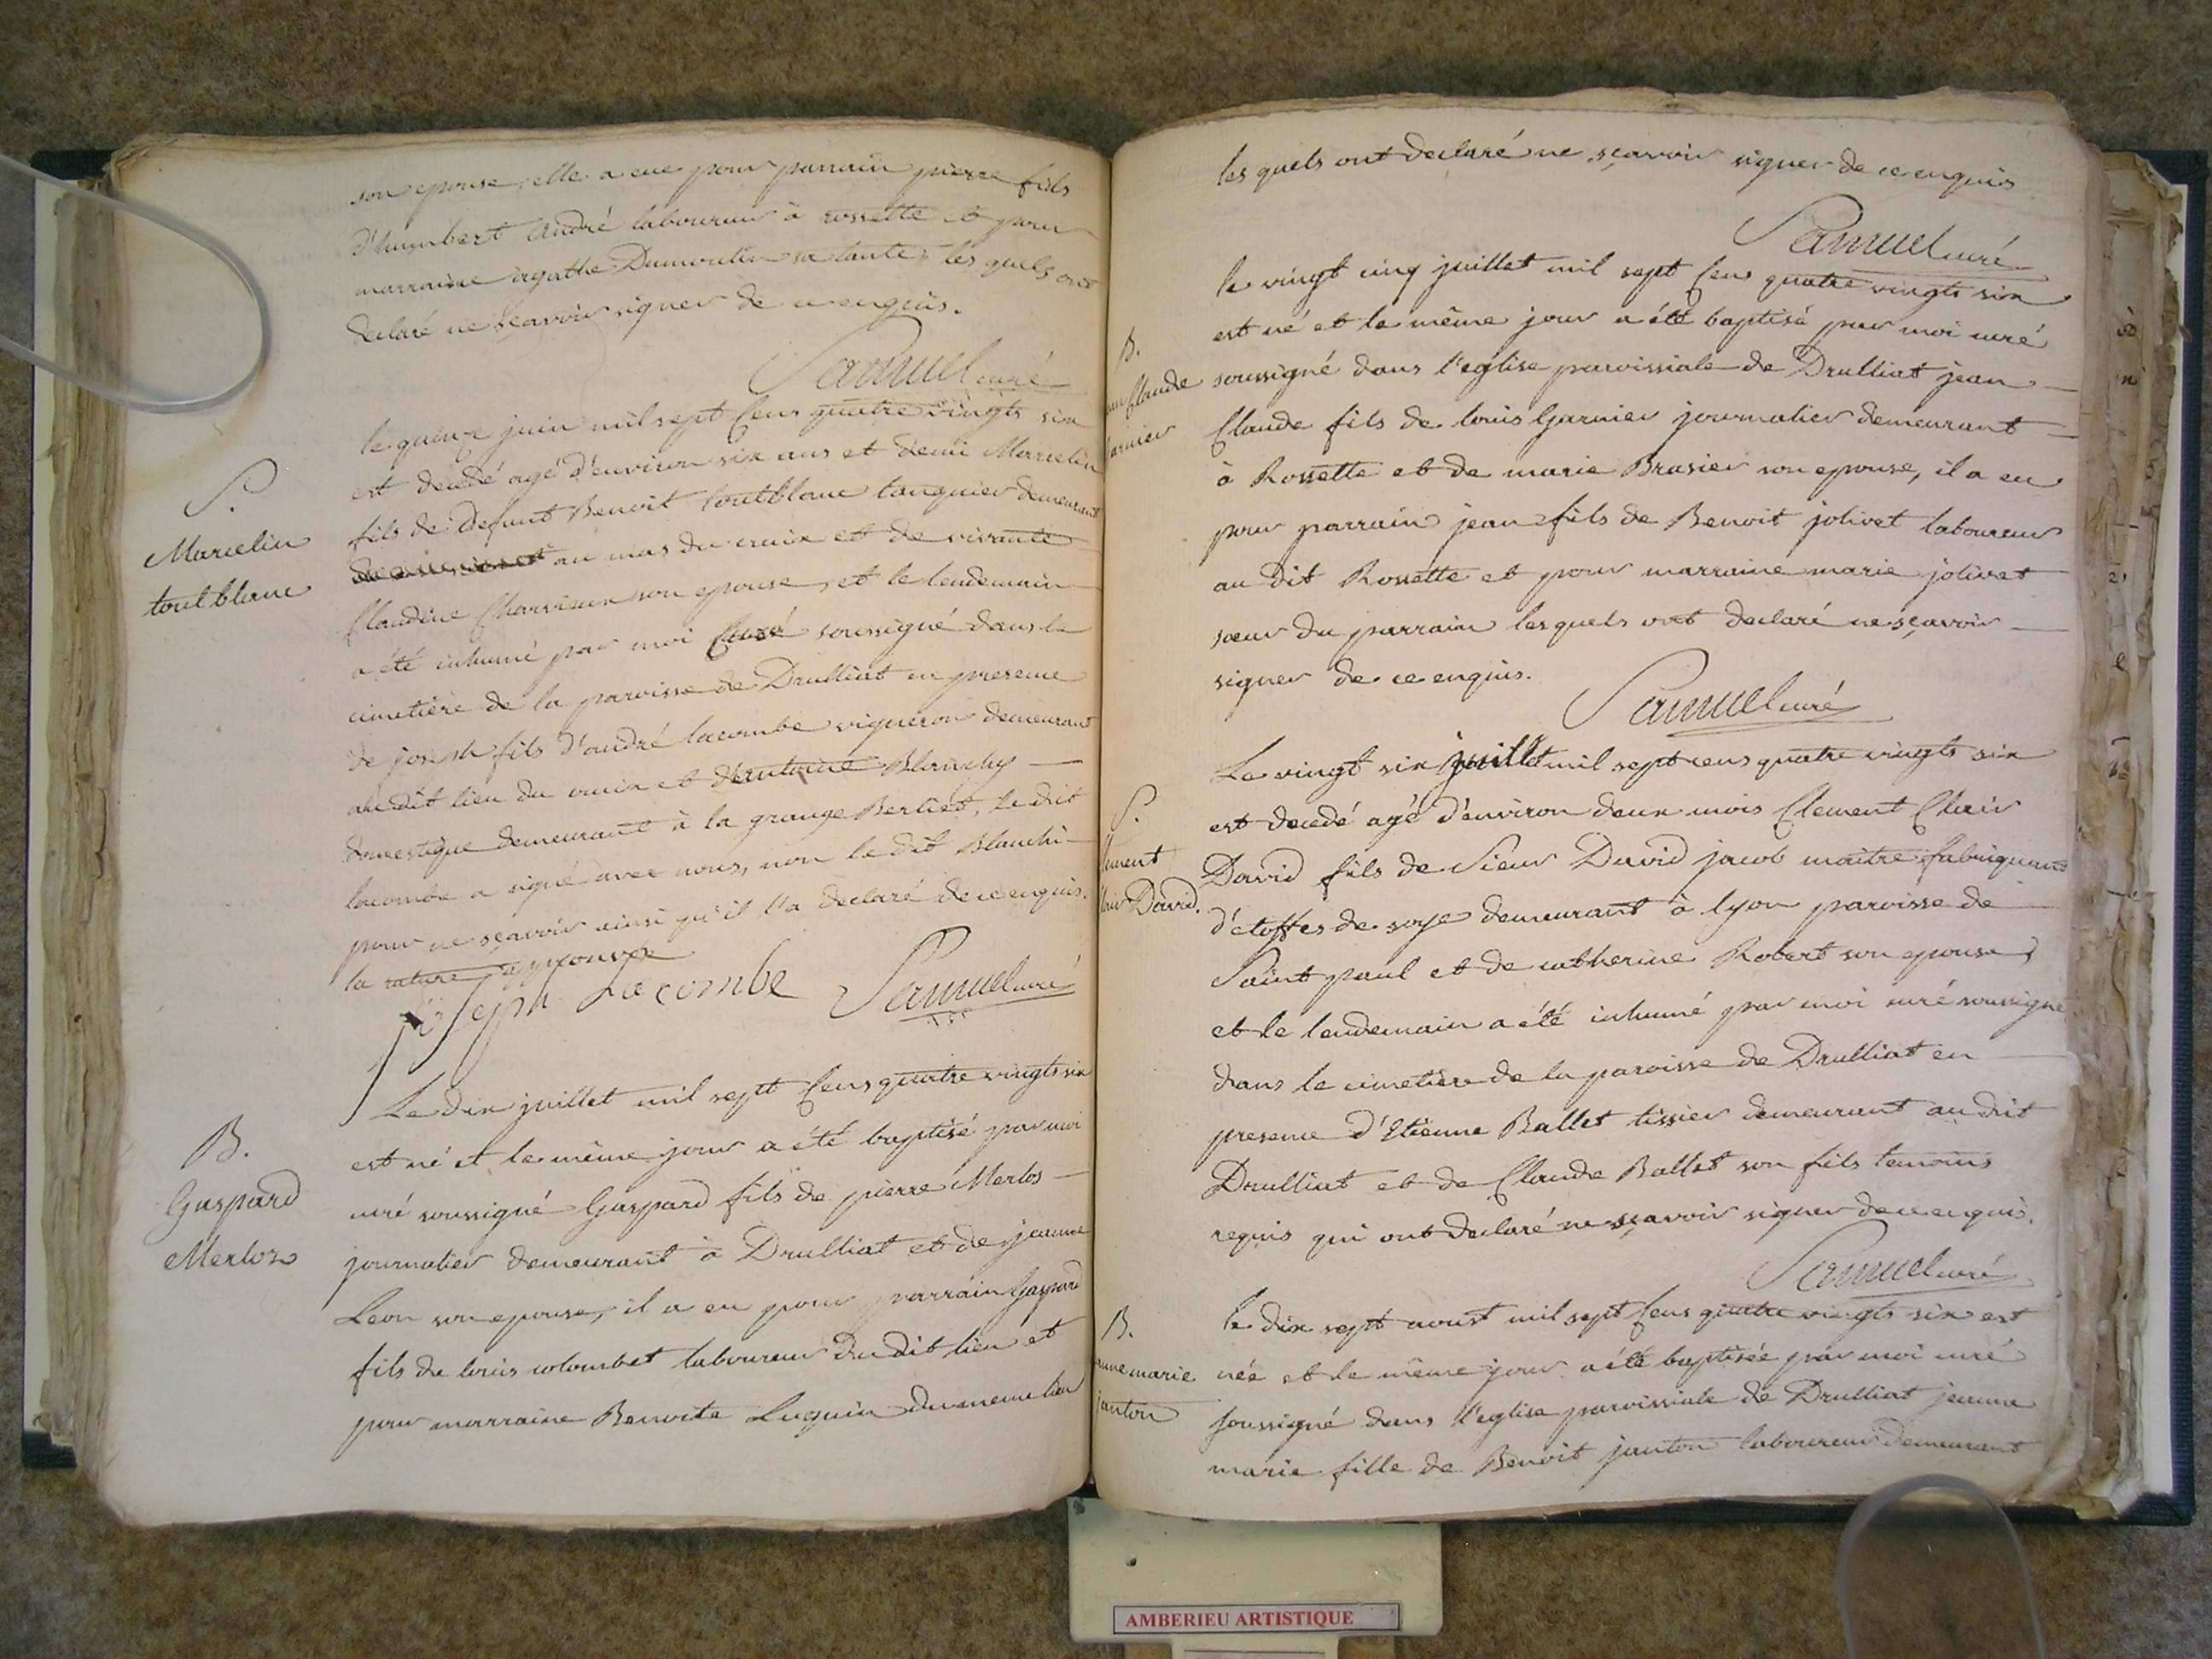 son epouse, elle a eue pour parrain pierre fils
d'humbert andré laboureur à rossette et pour
marraine agathe Dumoulin sa tante, les quels ont
declaré ne sçavoir signer de ce enquis.
Samuel curé
S.
Marcelin
toutblanc
le quinze juin mil sept Cens quatre vingts six
est decedé agé d'environ six ans et demi Marcelin
fils de defunt Benoit toutblanc demeurant
au mas du croix et de vivante
Claudine son epouse, et le lendemain
a été inhumé par moi Curé soussigné dans le
cimetière de la paroisse de Drulliat en presence
de joseph fils d'andré lacombe vigneron demeurant
au dit lieu du croix et d'antoine Blanchy
domestique demeurant à la grange Berliet, le dit
lacombe a signé avec nous, non le dit Blanchi
pour ne sçavoir ainsi qu'il l'a declaré de ce enquis.
la rature approuvée
joseph Lacombe Samuel curé
B.
Gaspard
Merlos
Le dix juillet mil sept Cens quatre vingts six
est né et le même jour a été baptisé par moi
curé soussigné Gaspard fils de pierre Merlos
journalier demeurant à Drulliat et de jeanne
Leon son epouse, il a eu pour parrain Gaspard
fils de louis colombet laboureur du dit lieu et
pour marraine Benoite Luquin du meme lieu
les quels ont declaré ne sçavoir signer de ce enquis
Samuel curé
B.
Claude
arnier
le vingt cinq juillet mil sept Cens quatre vingts six
est né et le même jour a été baptisé par moi curé
soussigné dans l'eglise paroissiale de Drulliat jean
Claude fils de louis Garnier journalier demeurant
à Rossette et de marie Brasier son epouse, il a eu
pour parrain jean fils de Benoit jolivet laboureur
au dit Rossette et pour marraine marie jolivet
sœur du parrain lesquels ont declaré ne sçavoir
signer de ce enquis.
Samuel curé
S.
lement
lair David.
Le vingt six juillet mil sept cens quatre vingts six
est decedé agé d'environ deux mois Clement Clair
David fils de Sieur David jacob maitre fabriquant
d'étoffes de soye demeurant à lyon paroisse de
Saint paul et de catherine Robert son epouse
et le lendemain a été inhumé par moi curé soussigné
dans le cimetière de la paroisse de Drulliat en
presence d'Etienne Ballet tissier demeurant au dit
Drulliat et de Claude Ballet son fils temoins
requis qui ont declaré ne sçavoir signer de ce enquis.
Samuel curé
B.
anne marie
janton
le dix sept aoust mil sept Cens quatre vingts six est
née et le même jour a été baptisée par moi curé
soussigné dans l'eglise paroissiale de Drulliat jeanne
marie fille de Benoit janton laboureur demeurant
AMBERIEU ARTISTIQUE